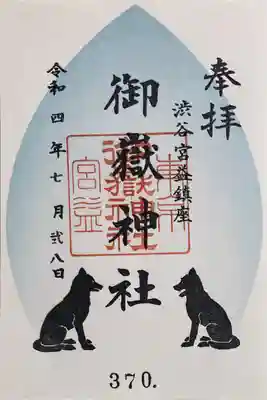 奉拝
渋谷宮益鎮座
御嶽神社
令和四年七月弐八日
370.